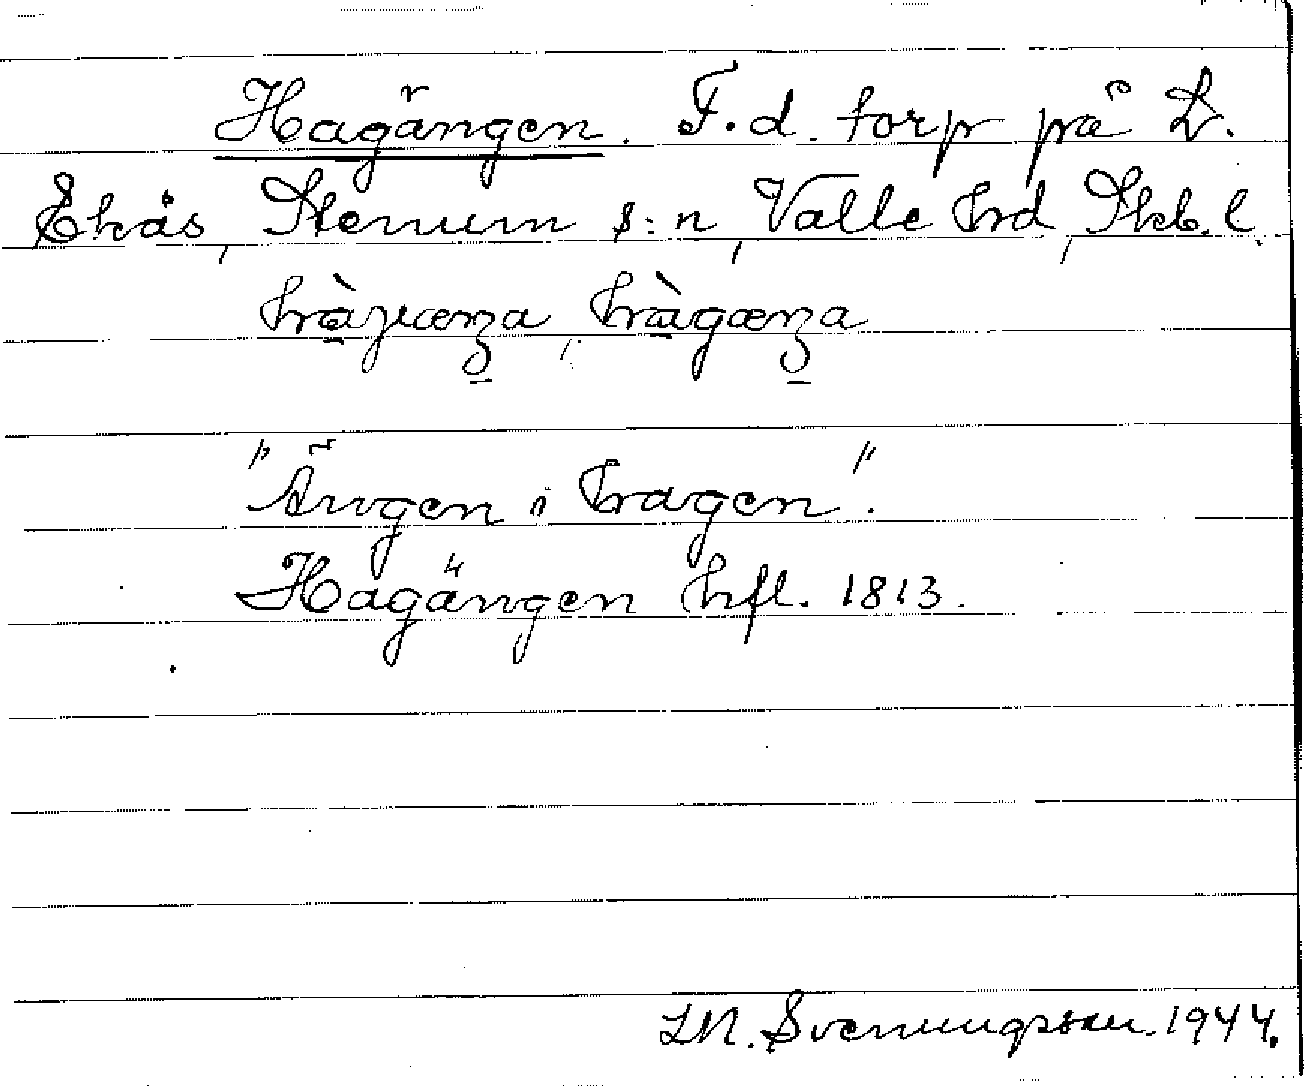 Hagängen. F.d. torp på L.
Ekås, Stenum s:n, Valle hrd, Skb. l.
"Ängen i hagen".
Hagängen hfl. 1813.
Svenungsson 1944.